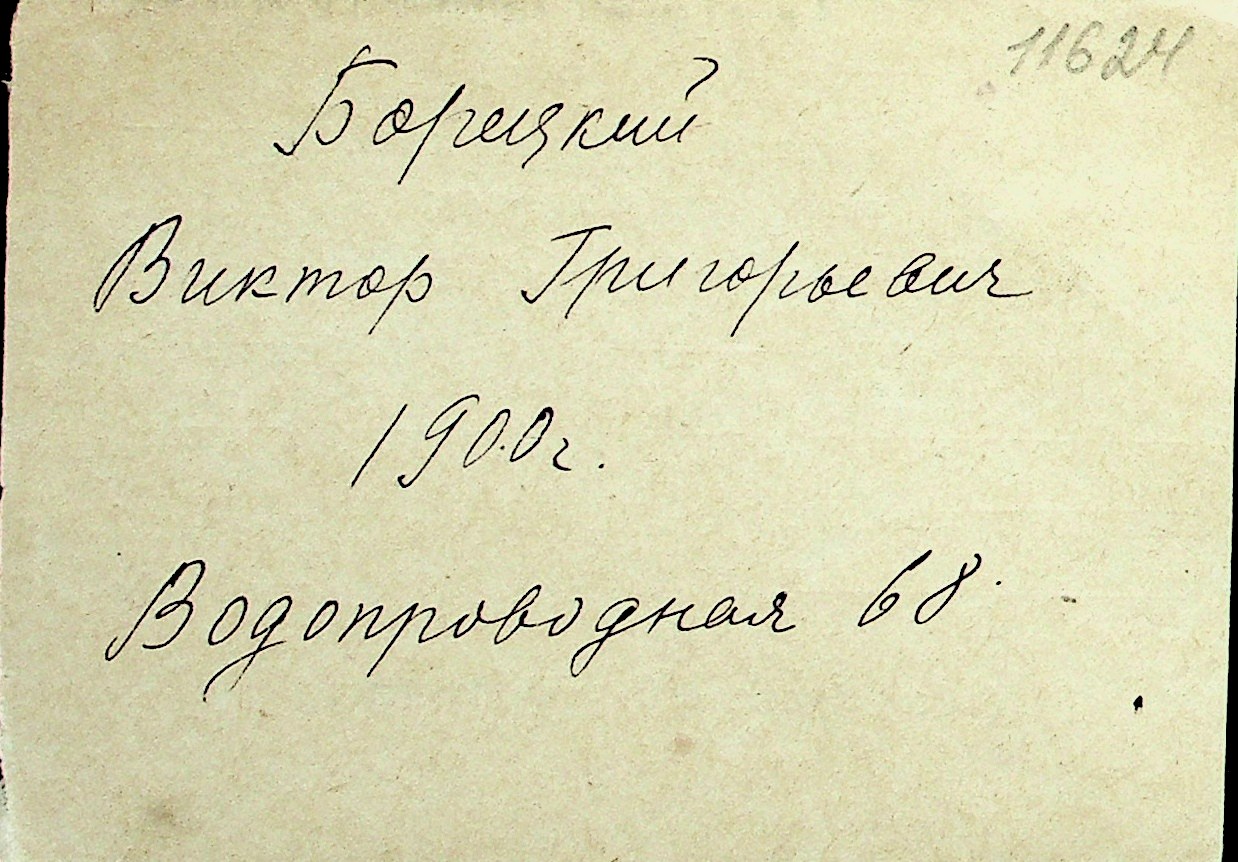 11624
Борецкий
Виктор Григорьевич
1900г.
Водопроводная 68